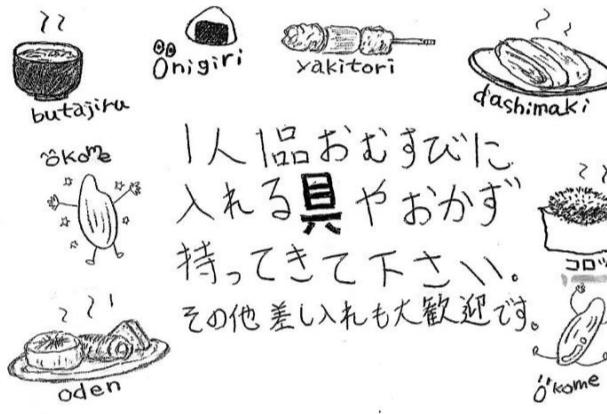 butajiru
Onigiri
yakitori
dashimaki
ôkome
1人1品おむすびに
入れる具やおかず
持ってきて下さい。
その他差し入れも大歓迎です。
コロッ
oden
ökome